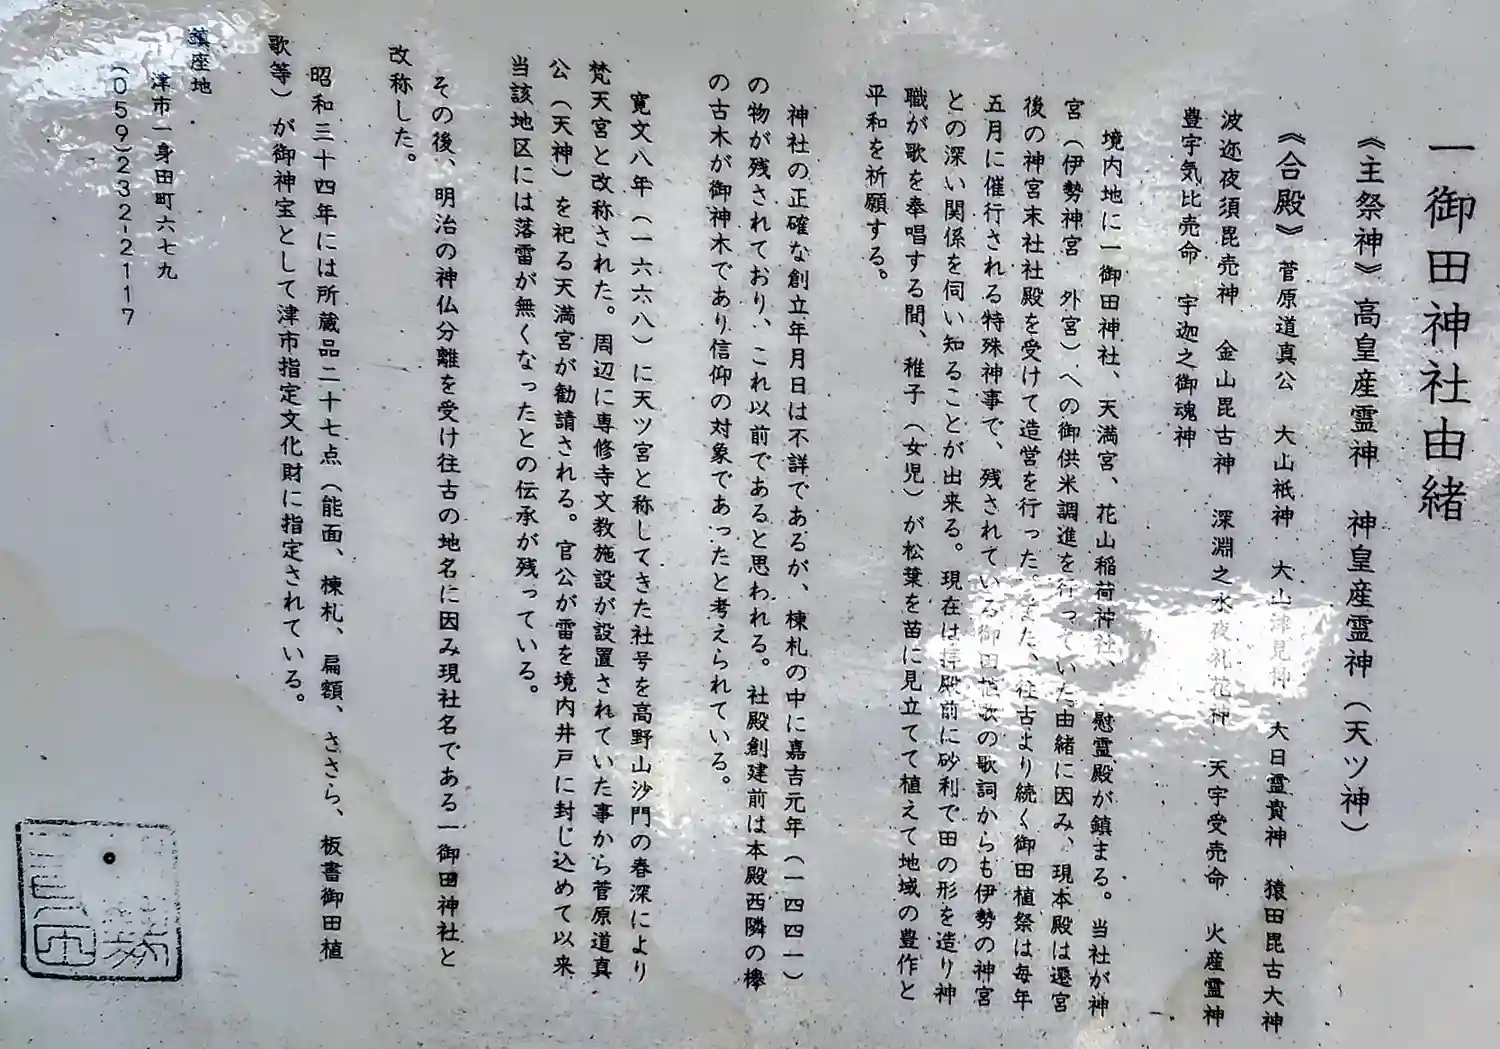 一御田神社由緒
《主祭神》高皇産霊神 神皇産霊神(天ツ神)
《合殿》 菅原道真公 大山祇神 大山津見神 大日霊貴神 猿田毘古大神
波迩夜須毘売神 金山毘古神 深淵之水夜礼花神 天宇受売命 火産霊神
豊宇気比売命 宇迦之御魂神
境内地に一御田神社、天満宮、花山稲荷神社、慰霊殿が鎮まる。当社が神
宮(伊勢神宮 外宮)への御供米調進を行っていた由緒に因み、現本殿は遷宮
後の神宮末社社殿を受けて造営を行った。また、往古より続く御田植祭は毎年
五月に催行される特殊神事で、残されている御田植歌の歌詞からも伊勢の神宮
との深い関係を伺い知ることが出来る。現在は拝殿前に砂利で田の形を造り神
職が歌を奉唱する間、稚子(女児)が松葉を苗に見立てて植えて地域の豊作と
平和を祈願する。
神社の正確な創立年月日は不詳であるが、棟札の中に嘉吉元年(一四四一)
の物が残されており、これ以前であると思われる。社殿創建前は本殿西隣の欅
の古木が御神木であり信仰の対象であったと考えられている。
寛文八年(一六六八)に天ツ宮と称してきた社号を高野山沙門の春深により
梵天宮と改称された。周辺に専修寺文教施設が設置されていた事から菅原道真
公(天神)を祀る天満宮が勧請される。官公が雷を境内井戸に封じ込めて以来
当該地区には落雷が無くなったとの伝承が残っている。
その後、明治の神仏分離を受け往古の地名に因み現社名である一御田神社と
改称した。
昭和三十四年には所蔵品二十七点(能面、棟札、扁額、ささら、板書御田植
歌等)が御神宝として津市指定文化財に指定されている。
鎮座地
津市一身田町六七九
(059)232-2117